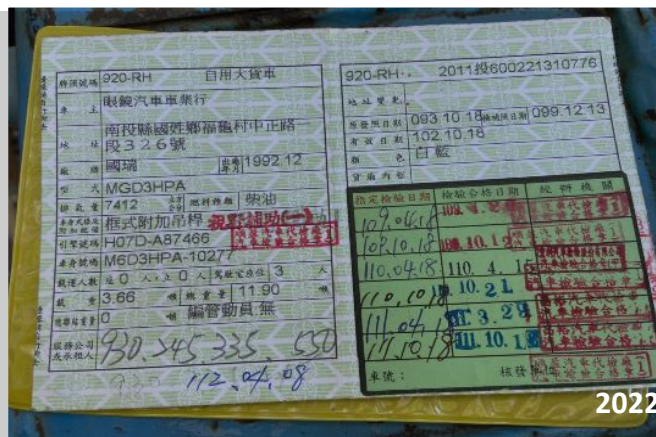 牌照號碼 920-RH 自用大貨車
車主 眼鏡汽車車業行
地址 南投縣國姓鄉福龜村中正路一段326號
廠牌 國瑞 出廠年月 1992.12
型式 MGD3HPA
排氣量 7412 立方公分 燃料種類 柴油
框式附加吊桿 視野輔助(一)
引擎號碼 H07D-A87466
車身號碼 M6D3HPA-10277
載運人數 立 0 人, 坐 0 人 駕駛室座位 3 人
載重 3.66 噸 總重量 11.90 噸
0 噸 編管動員:無
930.245.335. 550
930 112.04.08
920-RH 2011投600221310776
地址變更
原發照日期 093.10.18 換補照日期 099.12.13
有效日期 102.10.18
顏色 白藍
貨廂內容
指定檢驗日期 檢驗合格日期 經辦機關
109.04.18
109.10.18
110.04.18 110. 4. 15
110.10.18 10.21
111.04.18 111. 3. 29
111.10.18 111.10.18
車號: 核發
2022